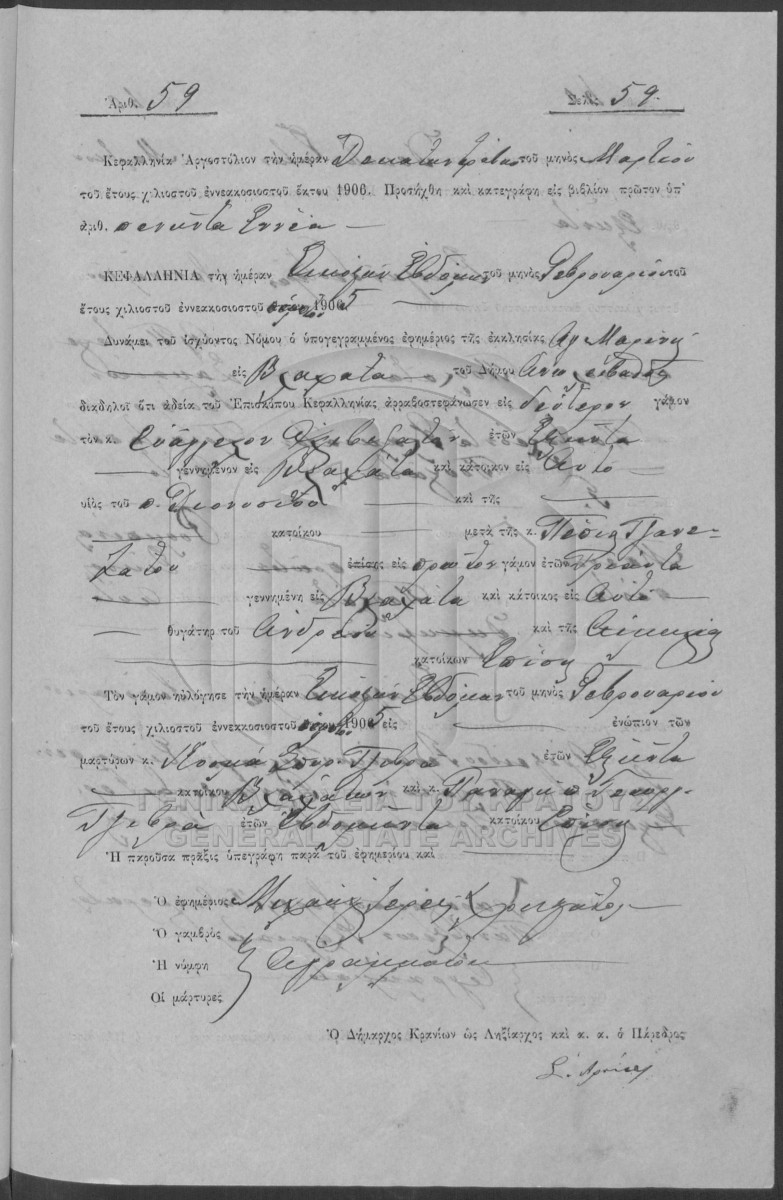 Ἀριθ. 59
Σελ. 59.
Κεφαλληνία Ἀργοστόλιον τὴν ἡμέραν Δεκάτην τρίτην τοῦ μηνὸς Μαρτίου
τοῦ ἔτους χιλιοστοῦ ἐννεακοσιοστοῦ ἕκτου 1906. Προσήχθη καὶ κατεγράφη εἰς βιβλίον πρῶτον ὑπ'
ἀριθ. πενῆντα Ἐννέα
ΚΕΦΑΛΛΗΝΙΑ τὴν ἡμέραν Εἰκοστὴν Ἑβδόμην τοῦ μηνὸς Φεβρουαρίου τοῦ
ἔτους χιλιοστοῦ ἐννεακοσιοστοῦ 1905
Δυνάμει τοῦ ἰσχύοντος Νόμου ὁ ὑπογεγραμμένος ἐφημέριος τῆς ἐκκλησίας Ἁγ Μαρίνης
εἰς Βλαχάτα τοῦ Δήμου
διαδηλοῖ ὅτι ἀδείᾳ τοῦ Ἐπισκόπου Κεφαλληνίας ἀρραβοστεφάνωσεν εἰς δεύτερον γάμον
τὸν κ. Εὐάγγελον ἐτῶν Ἑξῆντα
γεννημένον εἰς Βλαχάτα καὶ κάτοικον εἰς Αὐτό
υἱὸς τοῦ π. Διονυσίου καὶ τῆς
κατοίκου μετὰ τῆς κ. Πέπης Τζανε-
τάτου ἐπίσης εἰς πρῶτον γάμον ἐτῶν Τριάντα
γεννημένη εἰς Βλαχάτα καὶ κάτοικος εἰς Αὐτό
θυγάτηρ τοῦ Ἀνδρέου καὶ τῆς
κατοίκων Ἐπίσης
Τὸν γάμον ηὐλόγησε τὴν ἡμέραν Εἰκοστὴν Ἑβδόμην τοῦ μηνὸς Φεβρουαρίου
τοῦ ἔτους χιλιοστοῦ ἐννεακοσιοστοῦ 1905 εἰς ἐνώπιον τῶν
μαρτύρων κ. Κοσμᾶ Σπυρ. ἐτῶν Ἑξῆντα
κατοίκου Βλαχάτων καὶ κ. Παναγῆ Γεωργ.
ἐτῶν Ἑβδομῆντα κατοίκου Ἐπίσης
ΓΕΝΙΚΑ ΑΡΧΕΙΑ ΤΟΥ ΚΡΑΤΟΥΣ
GENERAL STATE ARCHIVES
Ἡ παροῦσα πρᾶξις ὑπεγράφη παρὰ τοῦ ἐφημερίου καὶ
Ὁ ἐφημέριος Μιχαὴλ Ἱερεὺς
Ὁ γαμβρὸς
Ἡ νύμφη Ἀγράμματοι
Οἱ μάρτυρες
Ὁ Δήμαρχος Κρανίων ὡς Ληξίαρχος καὶ α. α. ὁ Πάρεδρος